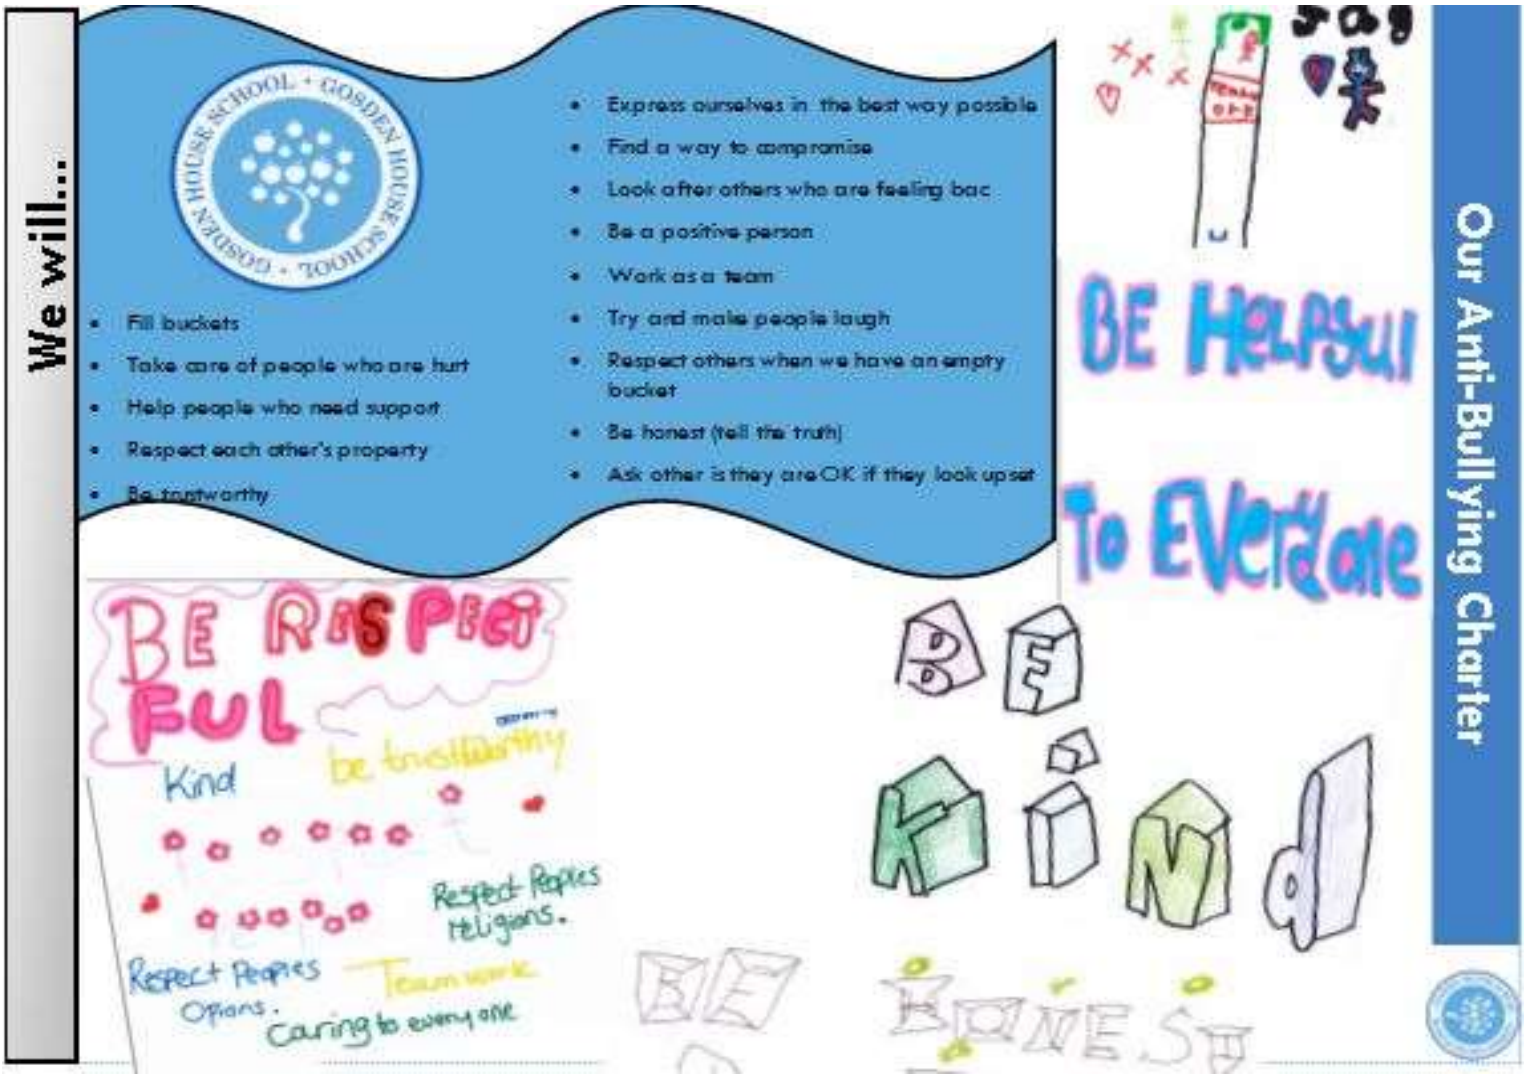 We will...
GOSDEN HOUSE SCHOOL • GOSDEN HOUSE SCHOOL •
• Fill buckets
• Take care of people who are hurt
• Help people who need support
• Respect each other's property
• Be trustworthy
• Express ourselves in the best way possible
• Find a way to compromise
• Look after others who are feeling bac
• Be a positive person
• Work as a team
• Try and make people laugh
• Respect others when we have an empty
bucket
• Be honest (tell the truth)
• Ask other is they are OK if they look upset
BE HELPFUl
To EVeryone
Our Anti-Bullying Charter
BE RESPECT
FUL
be trustworthy
Kind
Respect Peoples
religions.
Respect Peoples
Opions.
Teamwork
Caring to everyone
BE
KiNd
BE
HONEST